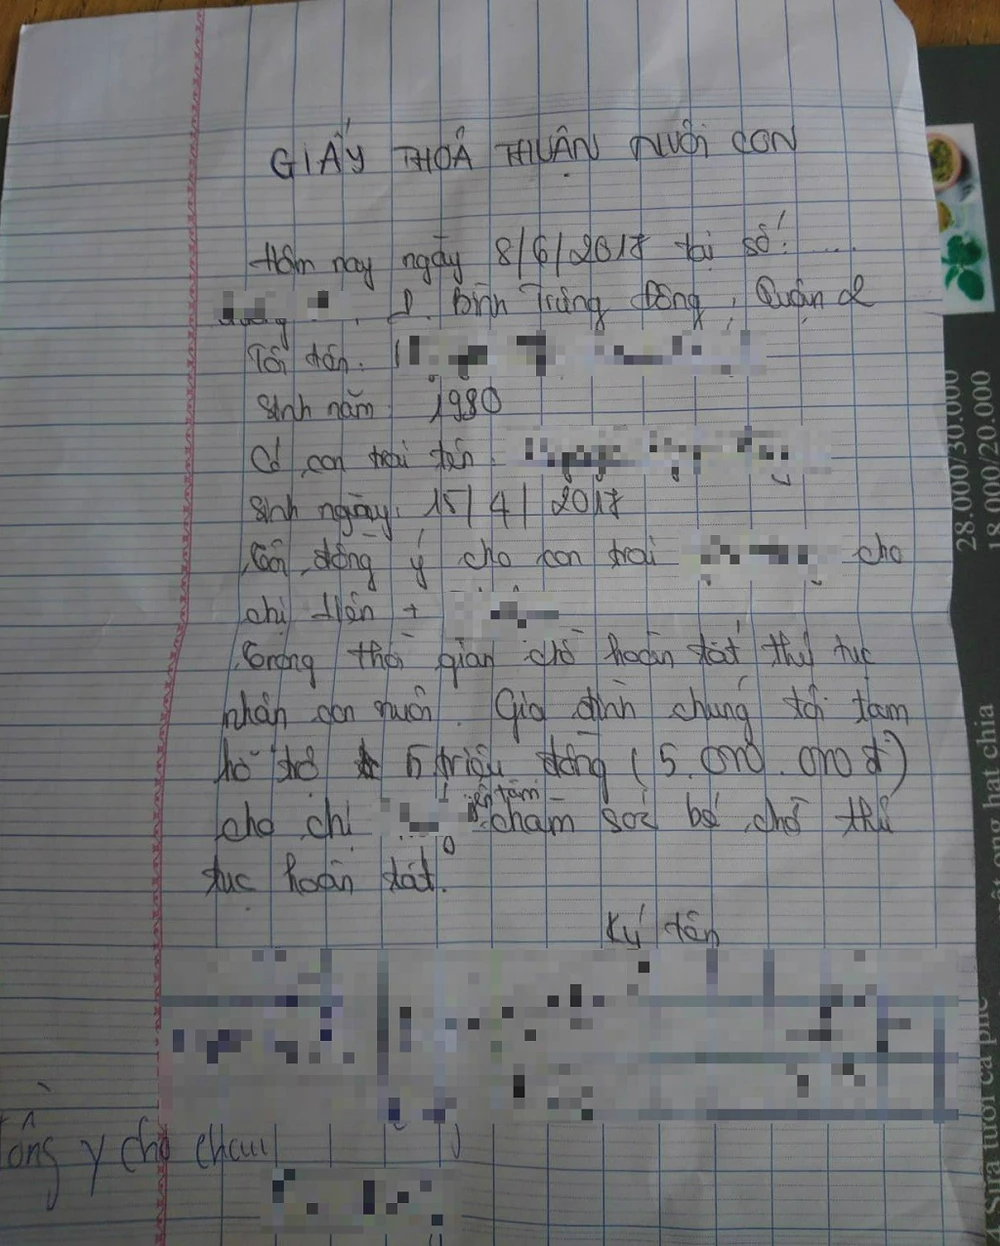 GIẤY THOẢ THUẬN NUÔI CON
Hôm nay ngày 8/6/2017 tại số: .....
đường P. Bình Trưng Đông, Quận 2
Tôi tên.
Sinh năm 1980
Có con trai tên
Sinh ngày. 15/4/2017
Tôi đồng ý cho con trai cho
chị Hiền +
Trong thời gian chờ hoàn tất thủ tục
nhận con nuôi. Gia đình chúng tôi tạm
hỗ trợ 5 triệu đồng (5.000.000đ)
cho chị yên tâm chăm sóc bé chờ thủ
tục hoàn tất.
Ký tên
đồng ý cho cháu
28.000/30.000
18.000/20.000
mật ong hạt chia
Sữa tươi cà phê